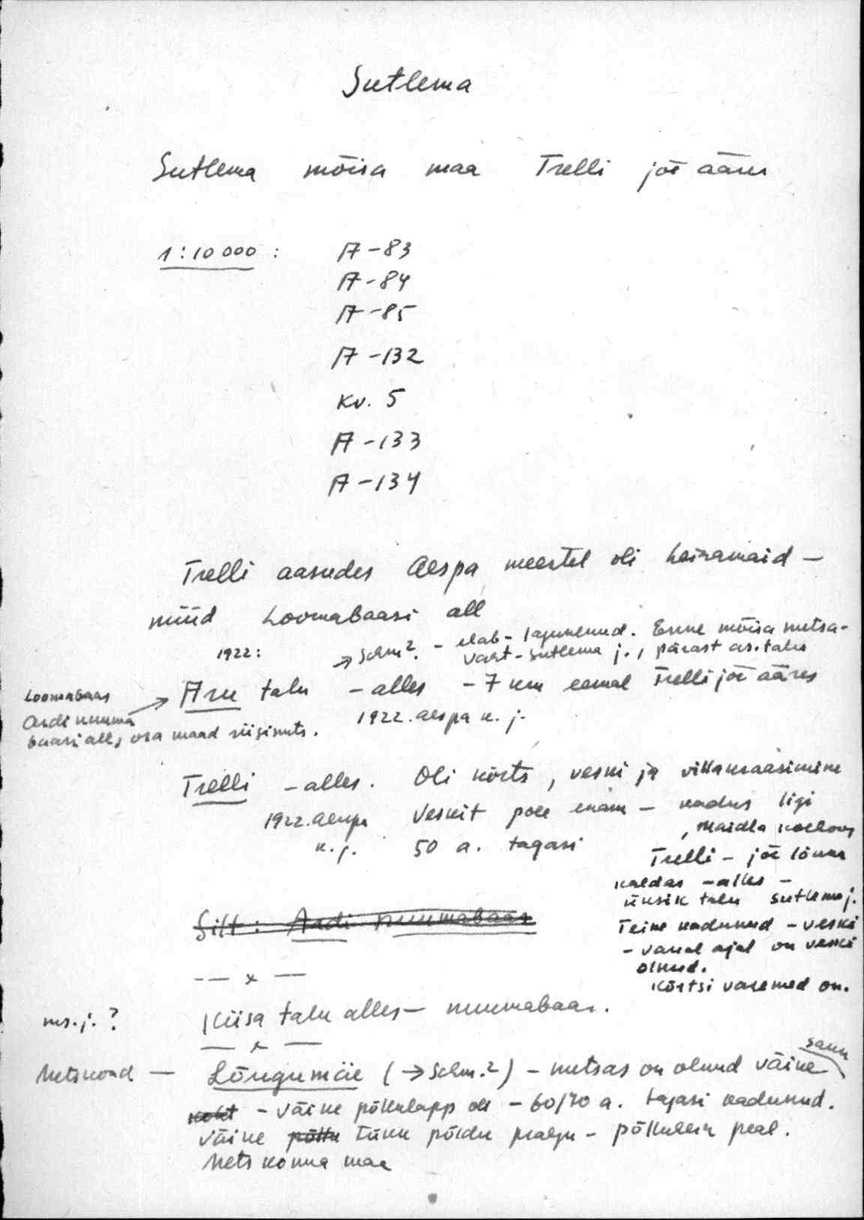 Sutlema
Sutlema mõisa maa Trelli jõe ääres
1:10 000 :
A-83
A-84
A-85
A-132
Kv. 5
A-133
A-134
Trelli aasudes Aespa meestel oli heinamaid –
nüüd Loomabaasi all
1922: → Schm². – elab – lagunenud. Enne mõisa metsa-
vaht – Sutlema j., pärast as. talu
Aru talu – alles – 7 km eemal Trelli jõe ääres
1922. Aespa k. j.
Loomabaas
Aardi nuuma
baasi all, osa maad riigimets.
Trelli – alles. Oli kõrts, veski ja villakraasimine
1922. Aespa k. j.
Veskit pole enam – kadus ligi
50 a. tagasi
, Maidla
Trelli – jõe lõuna
kaldas – alles –
üksik talu Sutlema j.
Teine kadunud – veski
– vanal ajal on veski
olnud.
Kõrtsi varemed on.
Silt: Aardi nuumabaas
— x —
ms. j. ?
Kiisa talu alles – nuumabaas.
— x —
Metskond –
Lõugumäe (→ Schm.²) – metsas on olnud väike saun
koht – väike põllulapp oli – 60/70 a. tagasi kadunud.
väike põllu tükk põldu praegu – põllulein peal.
Metskonna maa